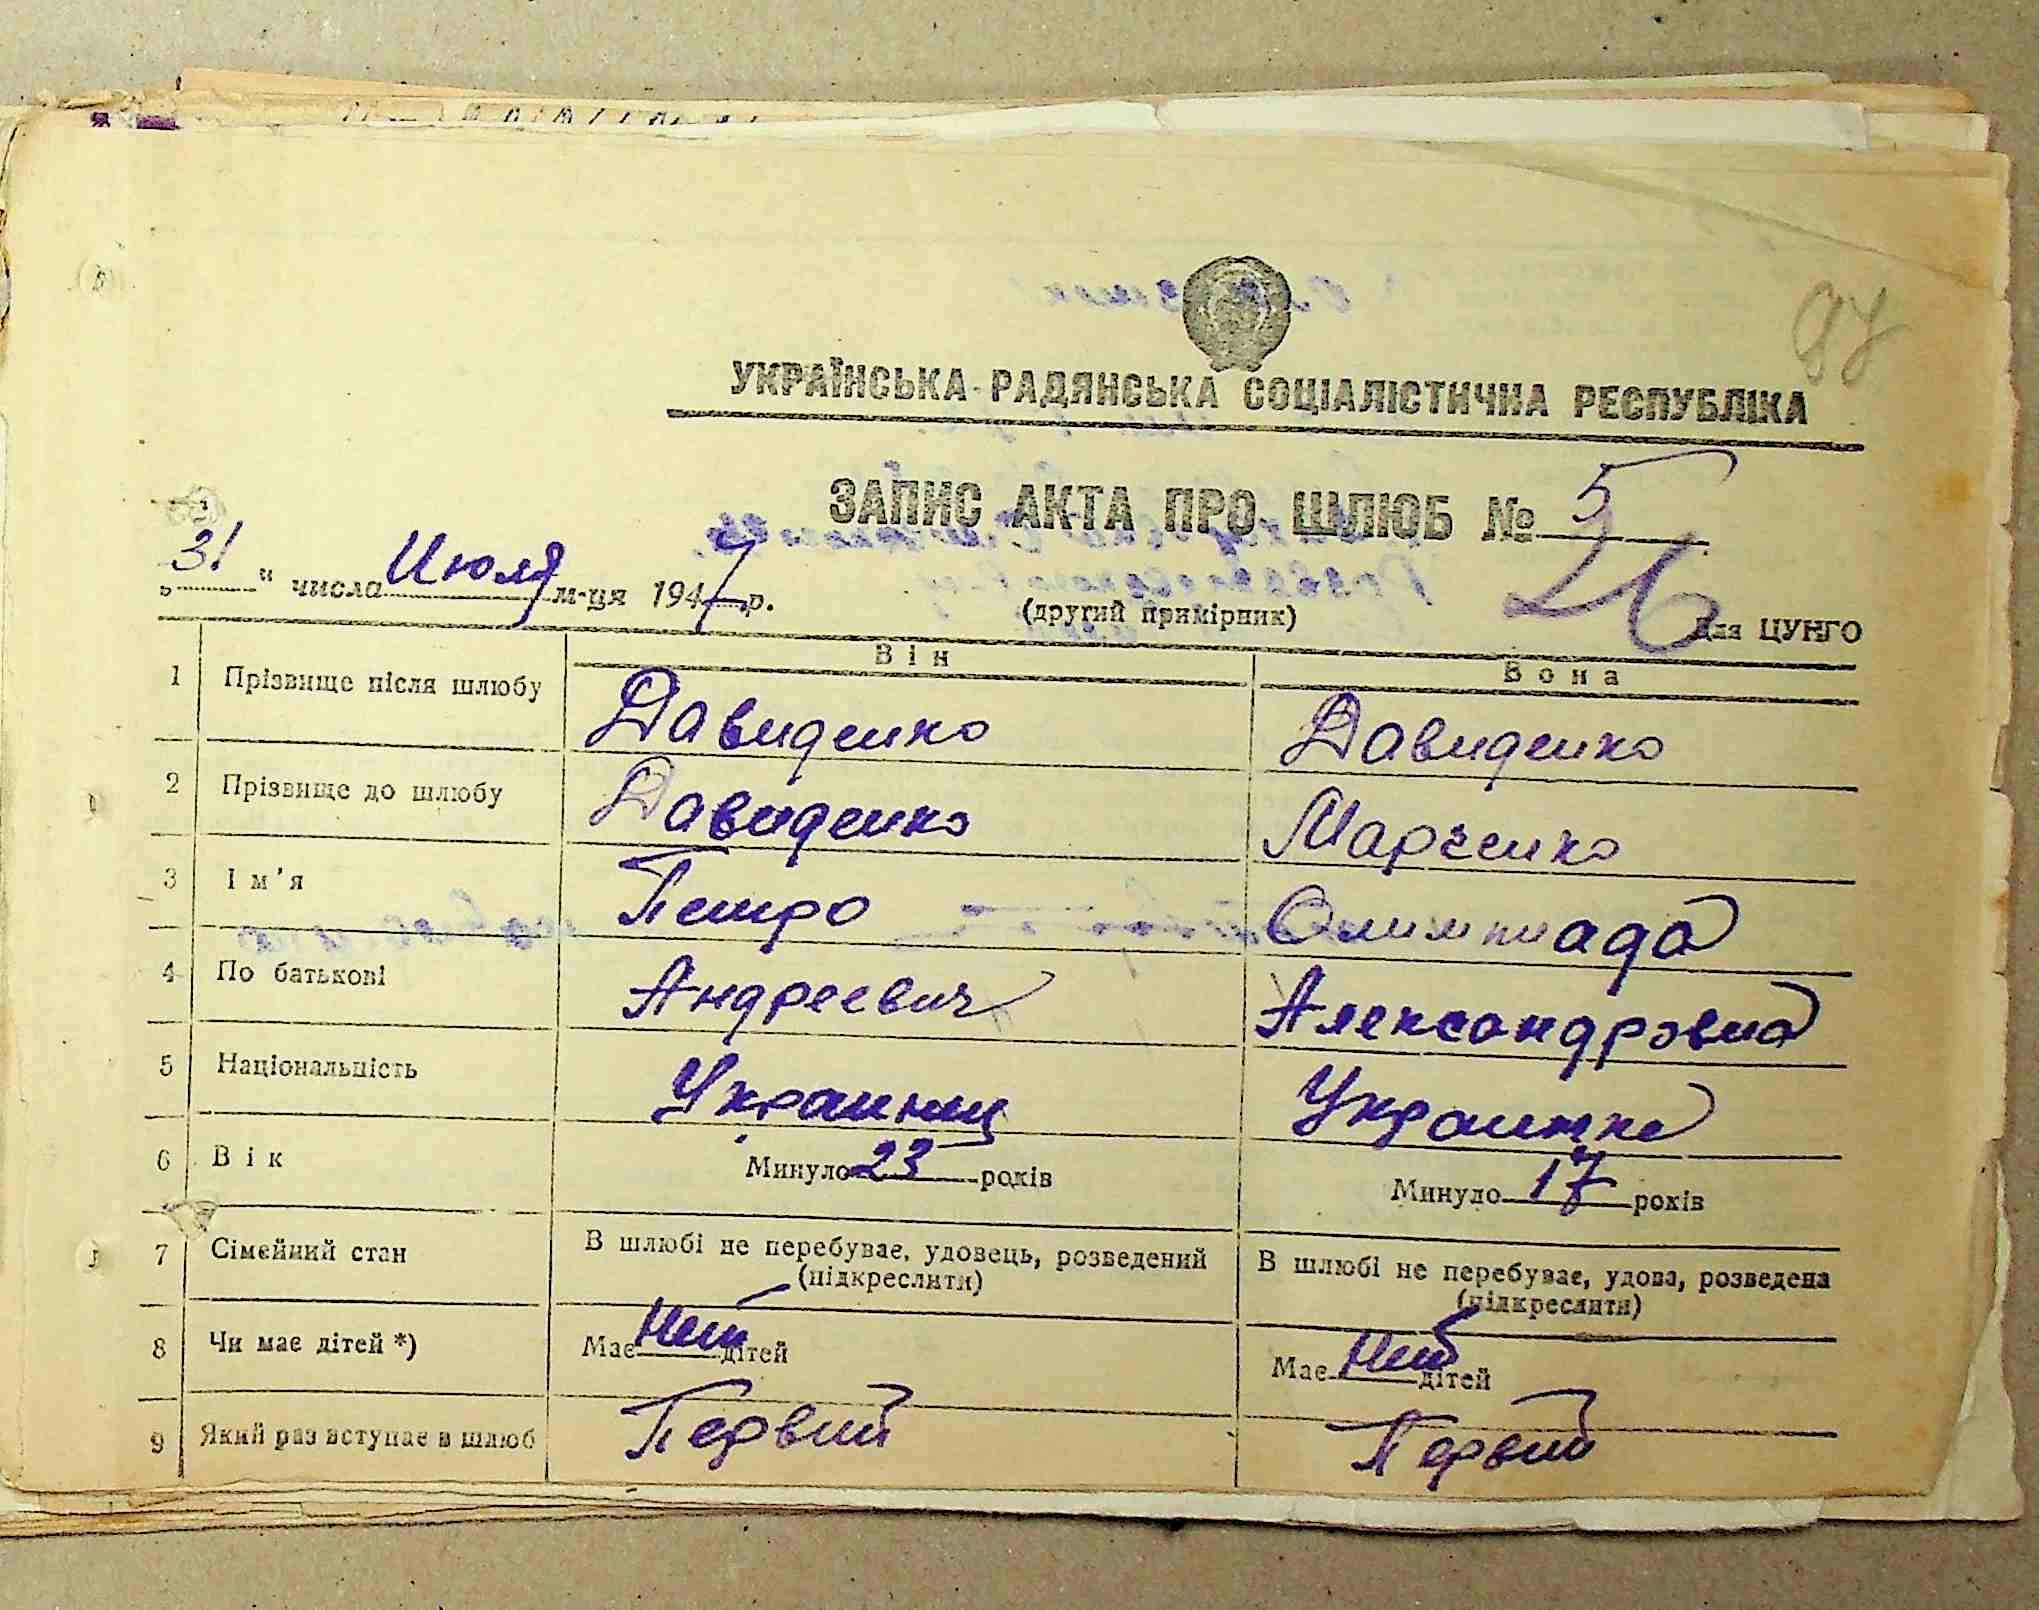 97
УКРАЇНСЬКА РАДЯНСЬКА СОЦІАЛІСТИЧНА РЕСПУБЛІКА
ЗАПИС АКТА ПРО ШЛЮБ № 5
26
„31“ числа Июля м-ця 1947 р.
(другий примірник)
Для ЦУНГО
Він Вона
1 Прізвище після шлюбу Давиденко Давиденко
2 Прізвище до шлюбу Давиденко Марченко
3 Ім'я Петро Олимпиада
4 По батькові Андреевич Александровна
5 Національність Украинец Украинка
6 Вік Минуло 23 років Минуло 17 років
7 Сімейний стан В шлюбі не перебуває, удовець, розведений (підкреслити) В шлюбі не перебуває, удова, розведена (підкреслити)
8 Чи має дітей *) Має Нет дітей Має Нет дітей
9 Який раз вступає в шлюб Первий Первий